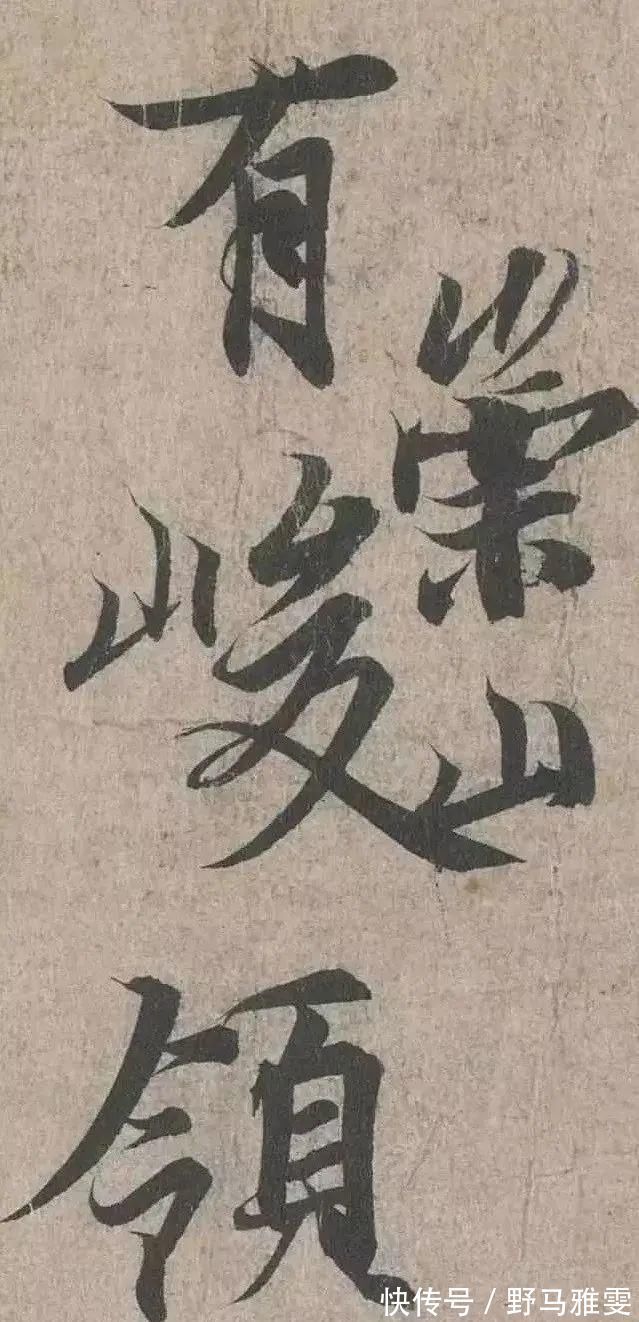 有
崇山
峻領
快传号 / 野马雅雯